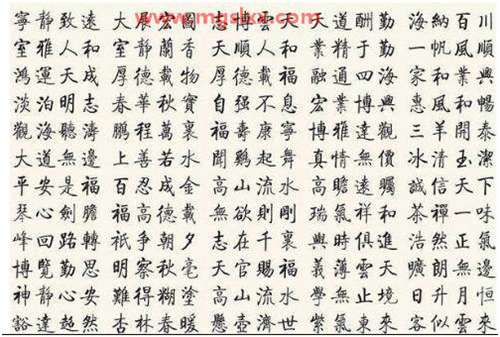 www.mgslxx.com
寧靜致遠 大展宏圖 志博雲天 天道酬勤 海納百川
室雅人和 室靜蘭香 順人和 業精于勤 一帆風順
鴻運天成 厚德載物 厚德載福 融通四海 和業興
淡泊明志 春華秋實 自强不息 宏業興家 惠風和暢
觀海聽濤 鵬程萬裏 福壽康寧 博雅達觀 三羊開泰
大道無邊 上善若水 聞鷄起舞 真情無價 冰清玉潔
平安是福 百忍成金 高山流水 高瞻遠矚 誠信天下
琴心劍膽 福高德載 無欲則剛 瑞氣祥和 茶禪一味
峰回路轉 祇争朝夕 志在千裏 與時俱進 浩然正氣
博覽勤思 明察秋毫 天官賜福 義薄雲天 曠朗無邊
神靜心安 難得糊塗 高山流水 學無止境 日升月恒
豁達超然 杏林春暖 懸壺濟世 紫氣東來 客似雲來